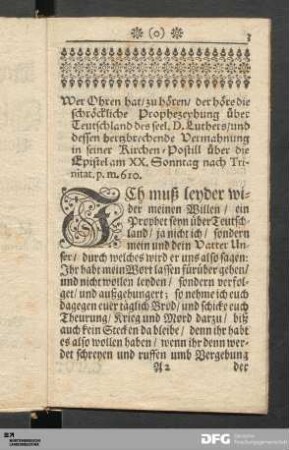 (o) 3
Wer Ohren hat/ zu hören/ der höre die
schröckliche Prophezeyhung über
Teutschland des seel. D. Luthers/ und
dessen hertzbrechende Vermahnung
in seiner Kirchen-Postill über die
Epistel am XX. Sonntag nach Tri-
nitat. p. m. 610.
ICh muß leyder wi-
der meinen Willen/ ein
Prophet seyn über Teutsch-
land/ ja nicht ich/ sondern
mein und dein Vatter Un-
ser/ durch welches wird er uns also sagen:
Ihr habt mein Wort lassen fürüber gehen/
und nicht wollen leyden/ sondern verfol-
get/ und außgehungert; so nehme ich euch
dagegen euer täglich Brod/ und schicke euch
Theurung/ Krieg und Mord darzu/ biß
auch kein Stecken da bleibe/ denn ihr habt
es also wollen haben/ wenn ihr denn wer-
det schreyen und ruffen umb Vergebung
A 2 der
WÜRTTEMBERGISCHE
LANDESBIBLIOTHEK
DFG Deutsche
Forschungsgemeinschaft